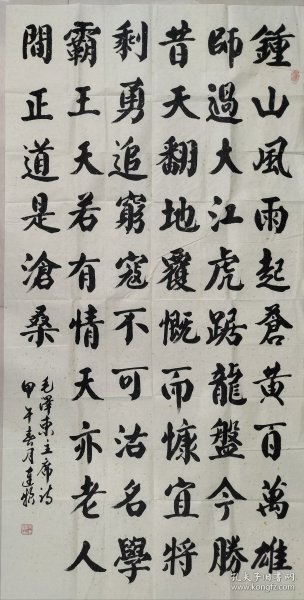 鍾山風雨起蒼黃百萬雄
師過大江虎踞龍盤今勝
昔天翻地覆慨而慷宜將
剩勇追窮寇不可沽名學
霸王天若有情天亦老人
間正道是滄桑
毛澤東主席詩
甲午春月
孔夫子旧书网